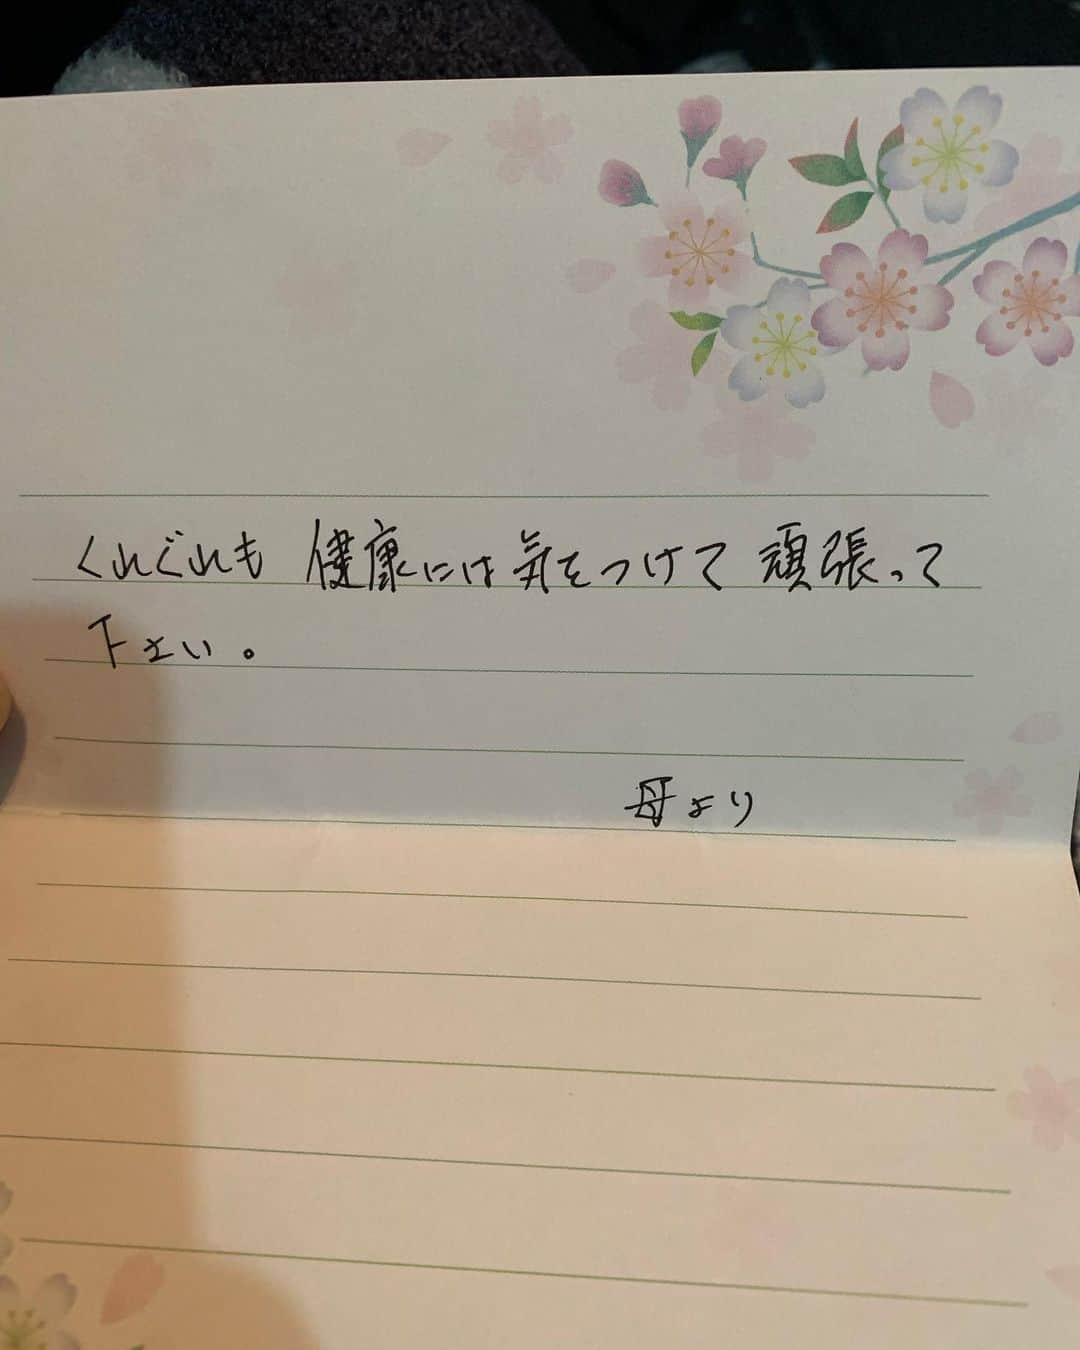 くれぐれも 健康には気をつけて 頑張って
下さい。
母より